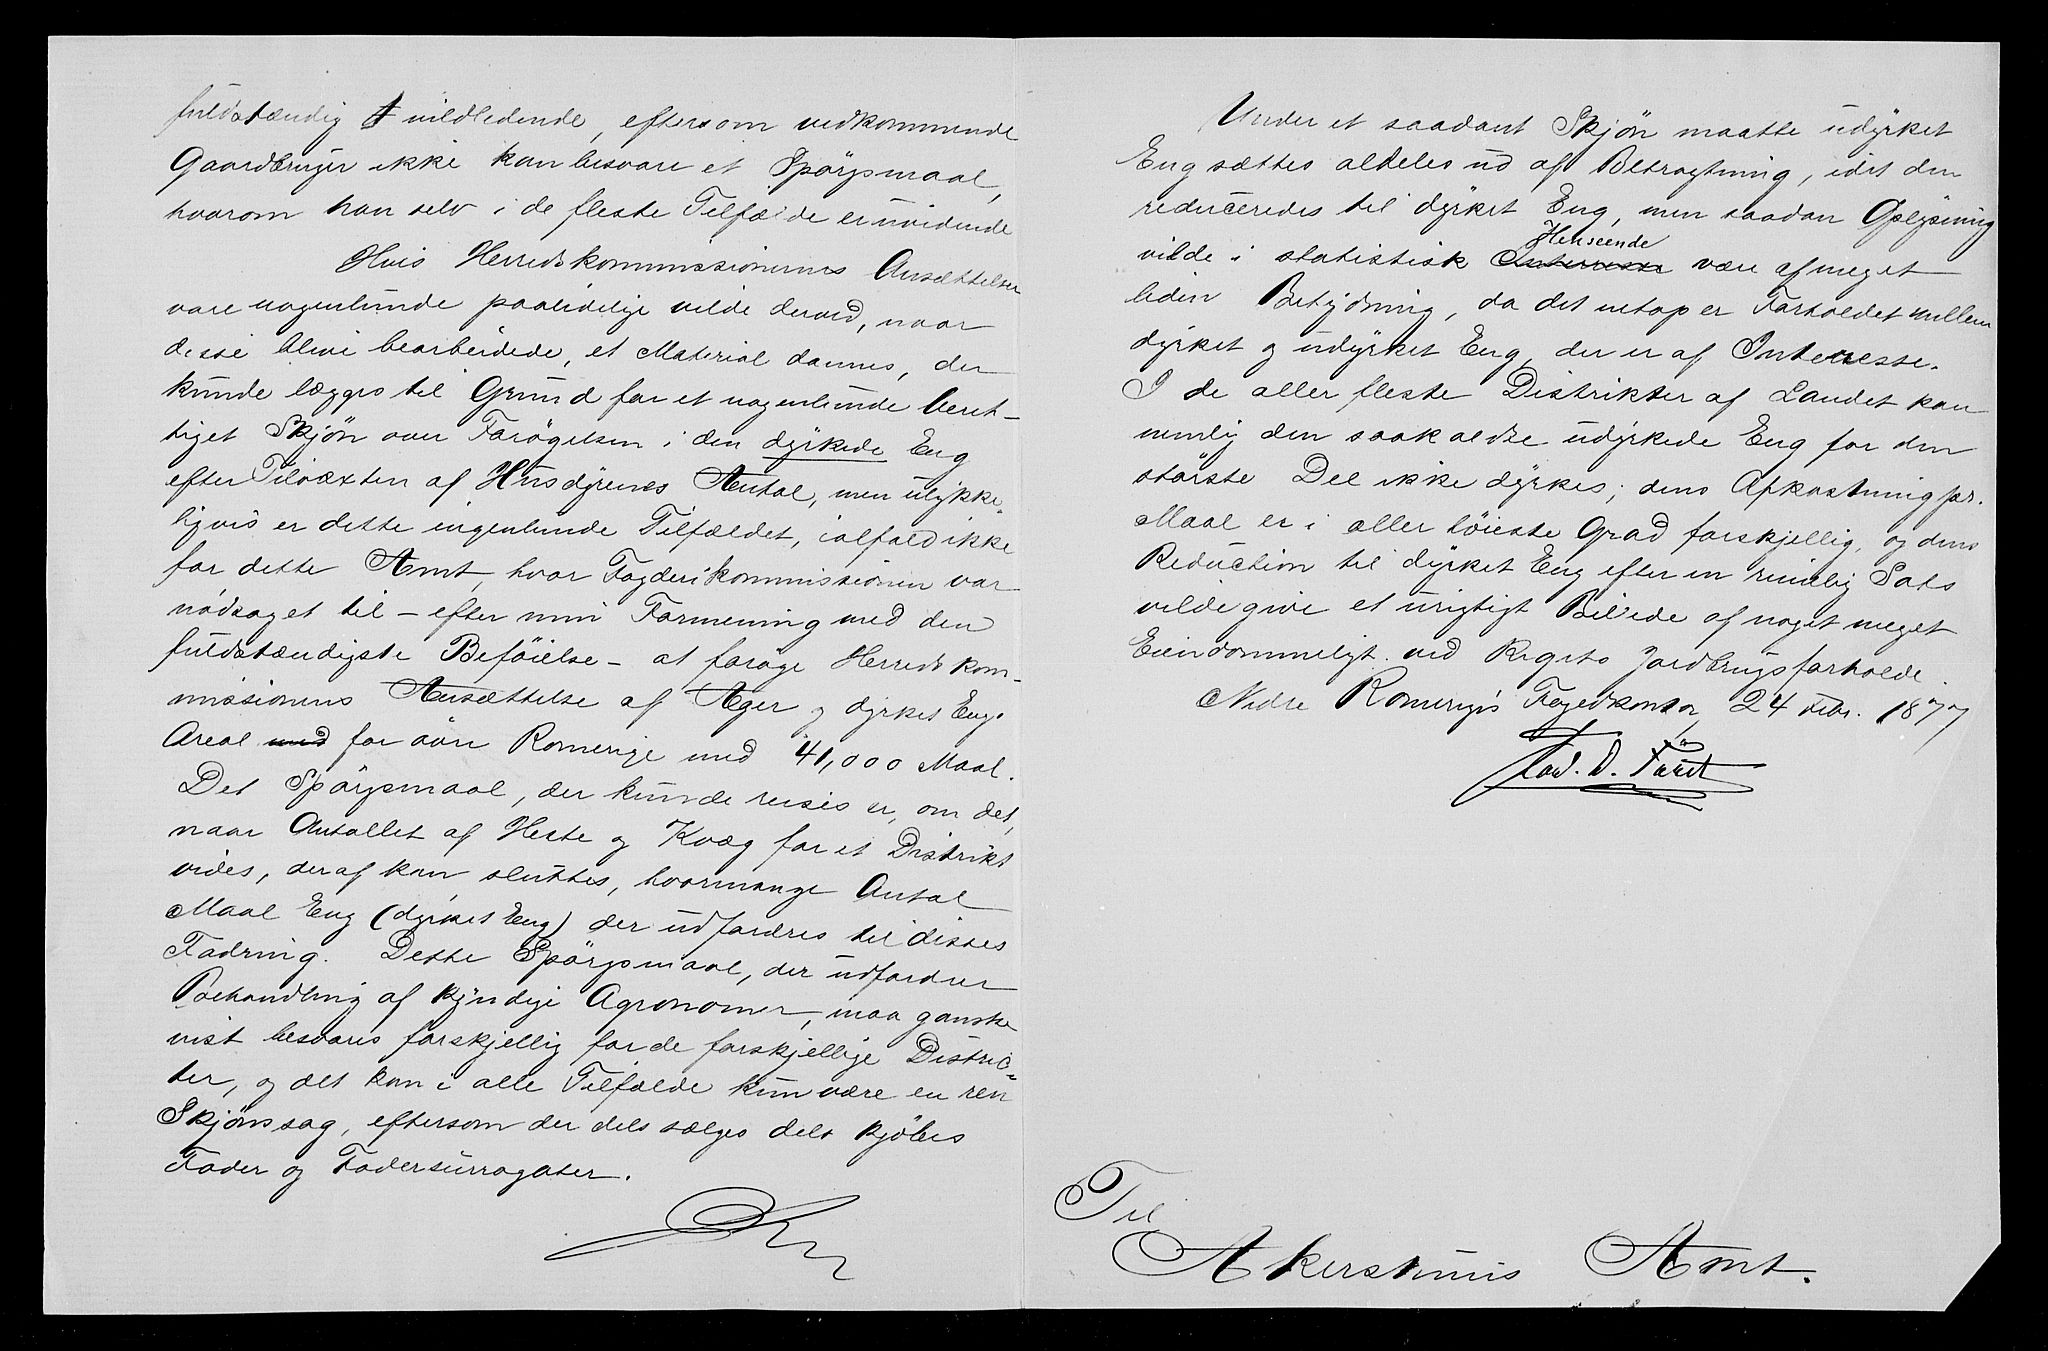 fuldstændig vildledende, eftersom vedkommende
Gaardbruger ikke kan besvare et Spörgsmaal,
hvorom han selv i de fleste Tilfælde er uvidende
Hvis Herredskommissionernes Ansættelser
vare nogenlunde paalidelige vilde derved, naar
disse blive bearbeidede, et Material dannes, der
kunde lægges til Grund for et nogenlunde beret-
tiget Skjön over Forögelsen i den dyrkede Eng
efter Tilvæxten af Husdyrenes Antal, men ulykke-
ligvis er dette ingenlunde Tilfældet, ialfald ikke
for dette Amt, hvor Fogderikommissionen var
nödsaget til – efter min Formening med den
fuldstændigste Beföielse – at foröge Herredskom-
missionens Ansættelse af Ager og dyrket Eng-
Areal med for övre Romerige med 41,000 Maal.
Det Spörgsmaal, der kunde reises er, om det,
naar Antallet af Heste og Kvæg for et Distrikt
vides, deraf kan sluttes, hvormange Antal
Maal Eng (dyrket Eng) der udfordres til disses
Fodring. Dette Spörgsmaal, der udfordrer
Behandling af kyndige Agronomer, maa ganske
vist besvares forskjellig for de forskjellige Distric-
ter, og det kan i alle Tilfælde kun være en ren
Skjönssag, eftersom der dels sælges dels kjöbes
Foder og Fodersurrogater.
Under et saadant Skjön maatte udyrket
Eng sættes aldeles ud af Betragtning, idet den
reduceredes til dyrket Eng, men saadan Oplysning
Henseende
vilde i statistisk Interesse være af meget
liden Betydning, da det netop er Forholdet mellem
dyrket og udyrket Eng, der er af Interesse.
I de aller fleste Distrikter af Landet kan
nemlig den saakaldte udyrkede Eng for den
störste Del ikke dyrkes; dens Afkastning pr.
Maal er i aller höieste Grad forskjellig, og dens
Reduction til dyrket Eng efter en rimelig Sats
vilde give et urigtigt Billede af noget meget
Eiendommeligt ved Rigets Jordbrugsforholde.
Nedre Romeriges Fogedkontor, 24 Febr. 1877
Til
Akershuus Amt.